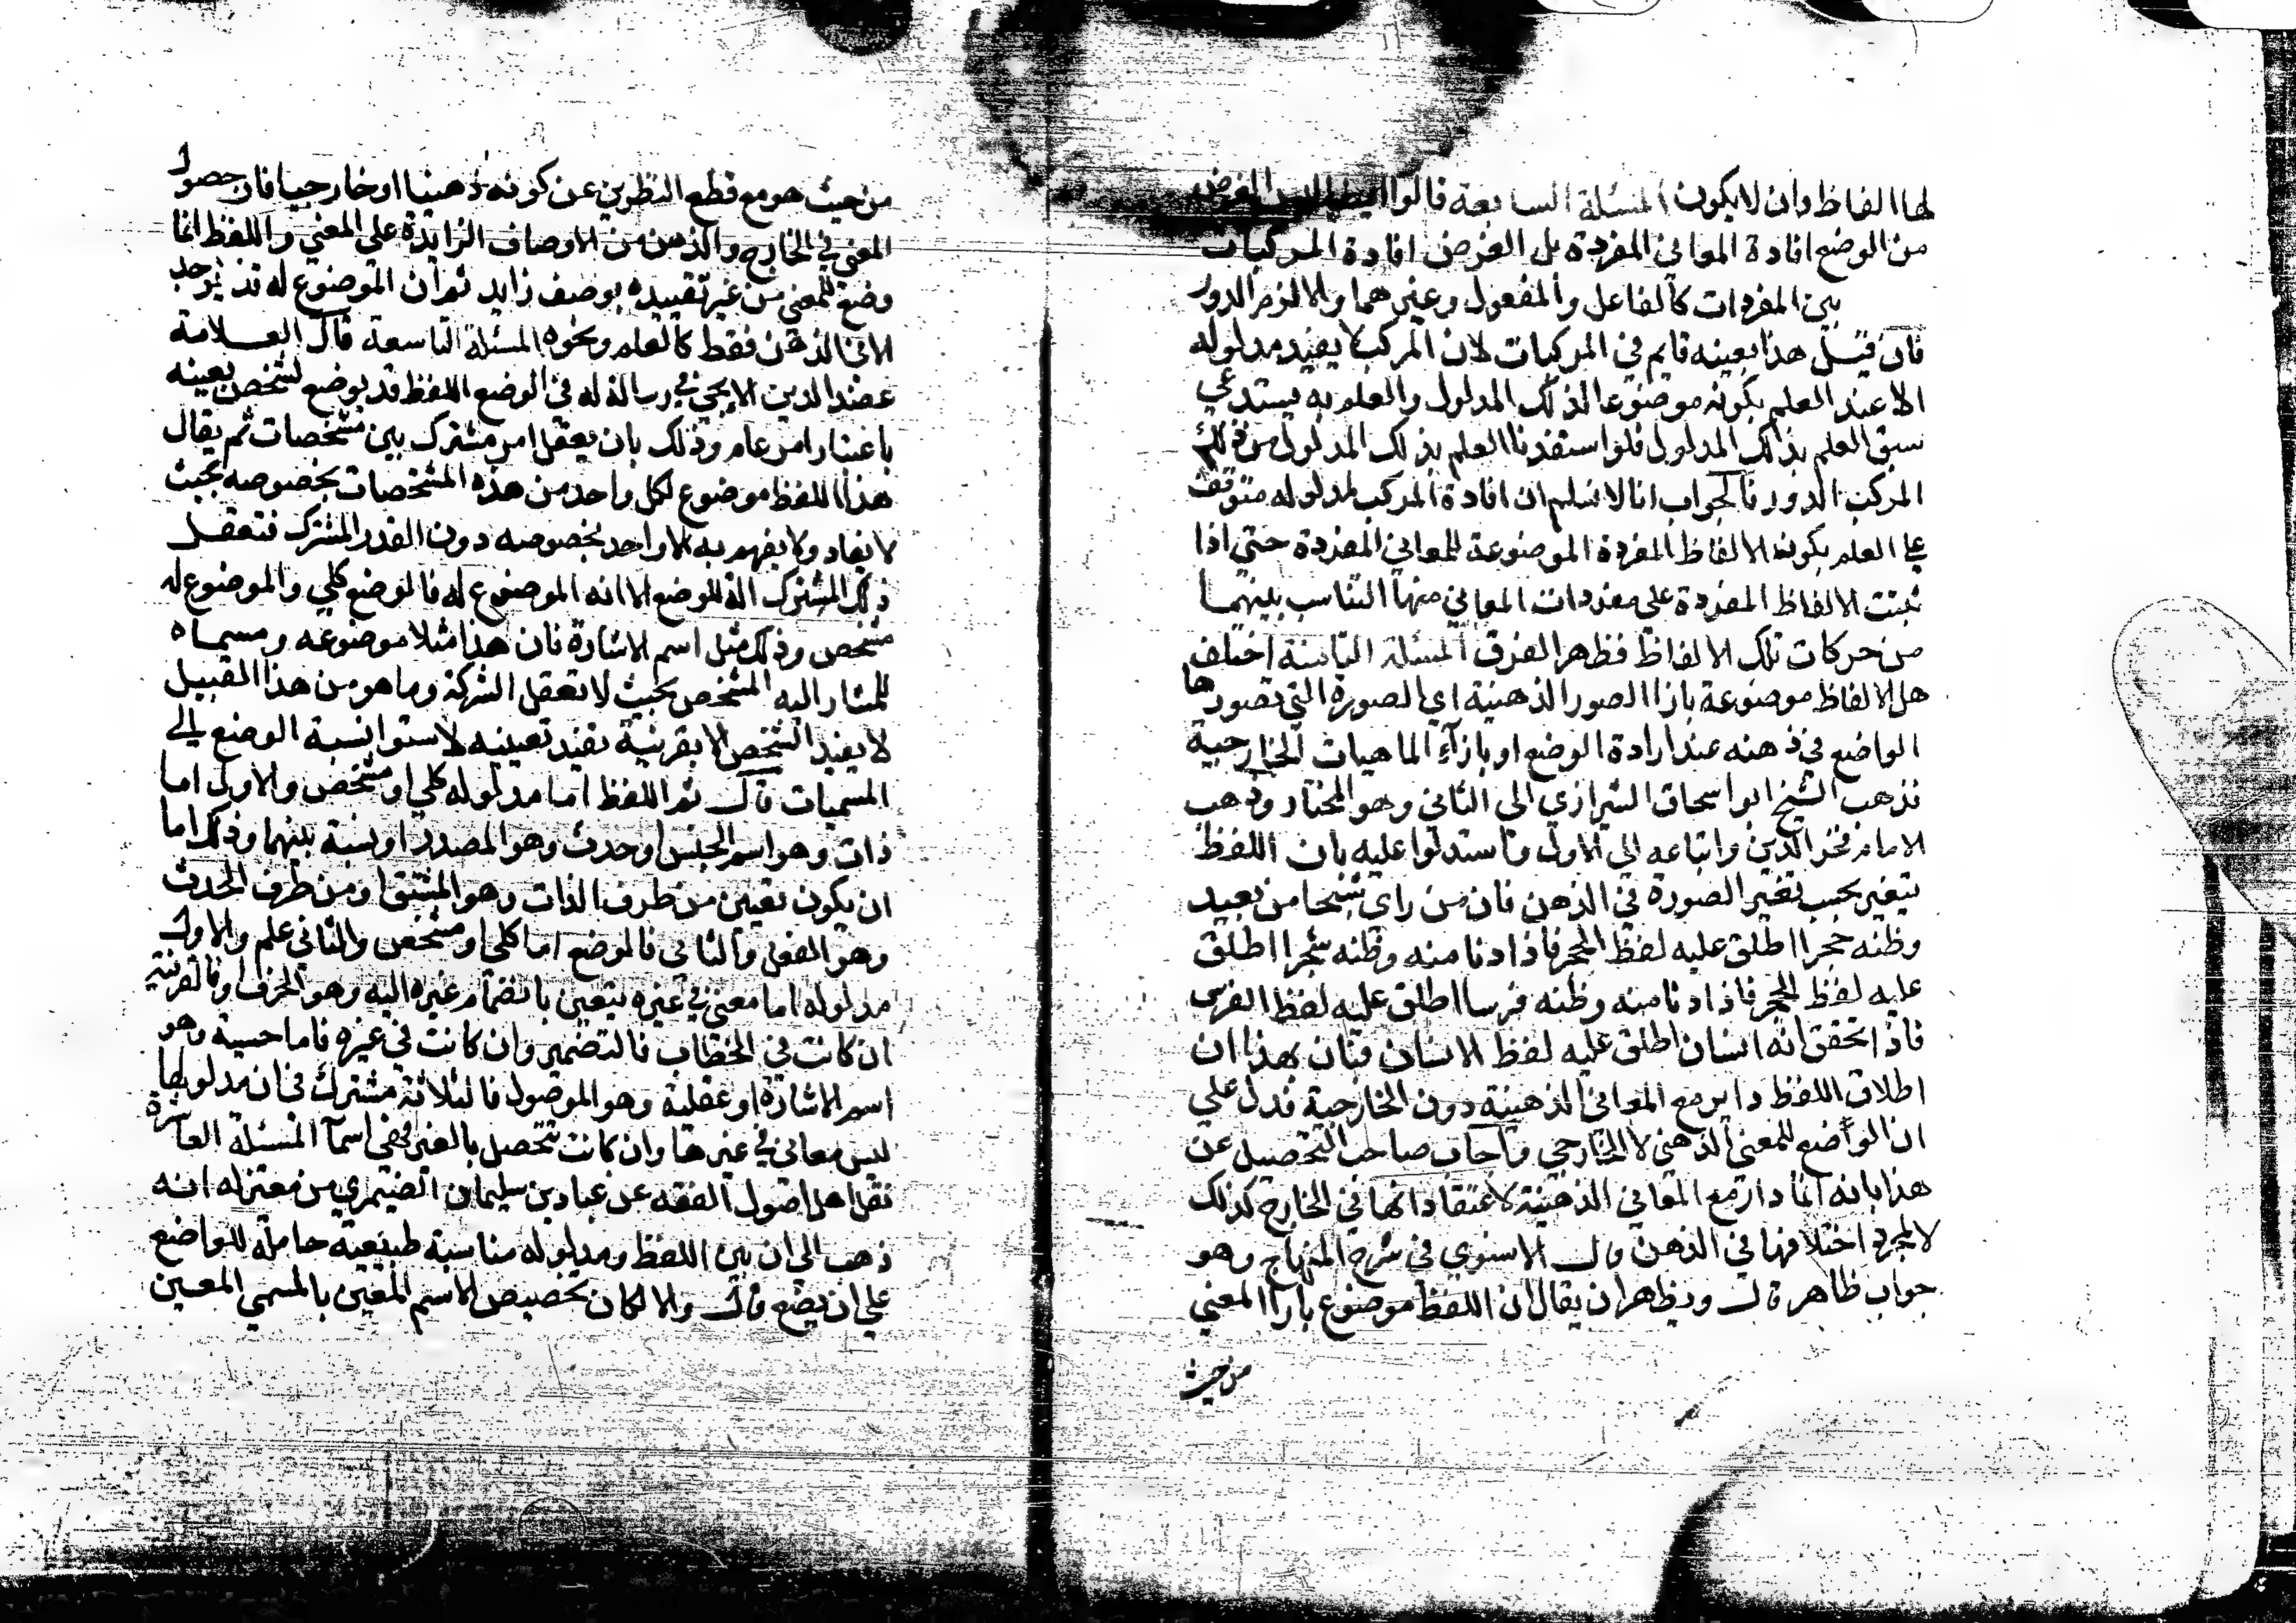 لها الفاظ وان لا يكون المسئلة السابعة قالوا ليس الغرض
من الوضع افادة المعاني المفردة بل الغرض افادة المركبات
بين المفردات كالفاعل والمفعول وغيرهما والا لزم الدور
فان قيل هذا بعينه قايم في المركبات لان المركب لا يفيد مدلوله
الا عند العلم بكونه موضوعا لذلك المدلول والعلم به يستدعي
سبق العلم بذلك المدلول فلو استفدنا العلم بذلك المدلول من ذلك
المركب الدور فالجواب انا لا نسلم ان افادة المركب لمدلوله متوقف
علي العلم بكونه الالفاظ المفردة الموضوعة للمعاني المفردة حتي اذا
ثبتت الالفاظ المفردة علي مفردات المعاني منها التناسب بينهما
من حركات تلك الالفاظ فظهر الفرق المسئلة الثامنة اختلف
هل الالفاظ موضوعة بازا الصور الذهنية اي الصورة التي تصورها
الواضع في ذهنه عند ارادة الوضع او بازآء الماهيات الخارجية
فذهب الشيخ ابو اسحاق الشيرازي الى الثاني وهو المختار وذهب
الامام فخر الدين واتباعه الى الاول واستدلوا عليه بان اللفظ
يتغير بحسب تغير الصورة في الذهن فان من راي شبحا من بعيد
وظنه حجرا اطلق عليه لفظ الحجر فاذا دنا منه وظنه شجرا اطلق
عليه لفظ الحجر فاذا دنا منه وظنه فرسا اطلق عليه لفظ الفرس
فاذا تحقق انه انسان اطلق عليه لفظ الانسان فبان بهذا ان
اطلاق اللفظ داير مع المعاني الذهنية دون الخارجية فدل علي
ان الواضع للمعني الذهني لا الخارجي واجاب صاحب التحصيل عن
هذا بانه انما دار مع المعاني الذهنية لاعتقاد انها في الخارج كذلك
لا لمجرد اختلافها في الذهن قال الاسنوي في شرح المنهاج وهو
جواب ظاهر قال ويظهر ان يقال ان اللفظ موضوع بازا المعني
من حيث
من حيث هو مع قطع النظر عن كونه ذهنيا او خارجيا فان حصول
المعني في الخارج والذهن من الاوصاف الزايدة علي المعني واللفظ انما
وضع للمعني من غير تقييده بوصف زايد ثم ان الموضوع له قد يوجد
الا في الذهن فقط كالعلم ونحوه المسئلة التاسعة قال العلامة
عضد الدين الايجي في رسالة له في الوضع اللفظ قد يوضع لشخص بعينه
باعتبار امر عام وذلك بان يعقل امر مشترك بين مشخصات ثم يقال
هذا اللفظ موضوع لكل واحد من هذه المشخصات بخصوصه بحيث
لا يفاد ولا يفهم به الا واحد بخصوصه دون القدر المشترك فتعقل
ذلك المشترك الة للوضع لا انه الموضوع له فالوضع كلي والموضوع له
مشخص وذلك مثل اسم الاشارة فان هذا مثلا موضوعه ومسماه
المشار اليه المشخص بحيث لا تعقل الشركة وما هو من هذا القبيل
لا يفيد الشخص الا بقرينة تفيد تعيينه لاستوا نسبة الوضع الى
المسميات قال ثم اللفظ اما مدلوله كلي او مشخص والاول اما
ذات وهو اسم الجنس او حدث وهو المصدر او نسبة بينهما وذلك اما
ان يكون تعين من طرف الذات وهو المشتق او من طرف الحدث
وهو الفعل والثاني فالموضع اما كلي او مشخص والثاني علم والاول
مدلوله اما معني في غيره يتعين بانضمام غيره اليه وهو الحرف او فالقرينة
ان كانت في الخطاب فالضمير وان كانت في غيره فاما حسية وهو
اسم الاشارة او عقلية وهو الموصول فالثلاثة مشترك في ان مدلولها
ليس معاني في غيرها وان كانت تتحصل بالغير فهي اسمآ المسئلة العاشرة
نقل اهل اصول الفقه عن عباد بن سليمان الصيمري من معتزله انه
ذهب الى ان بين اللفظ ومدلوله مناسبة طبيعية حاملة للواضع
علي ان يضع قال والا لكان تخصيص الاسم المعين بالمسمي المعين